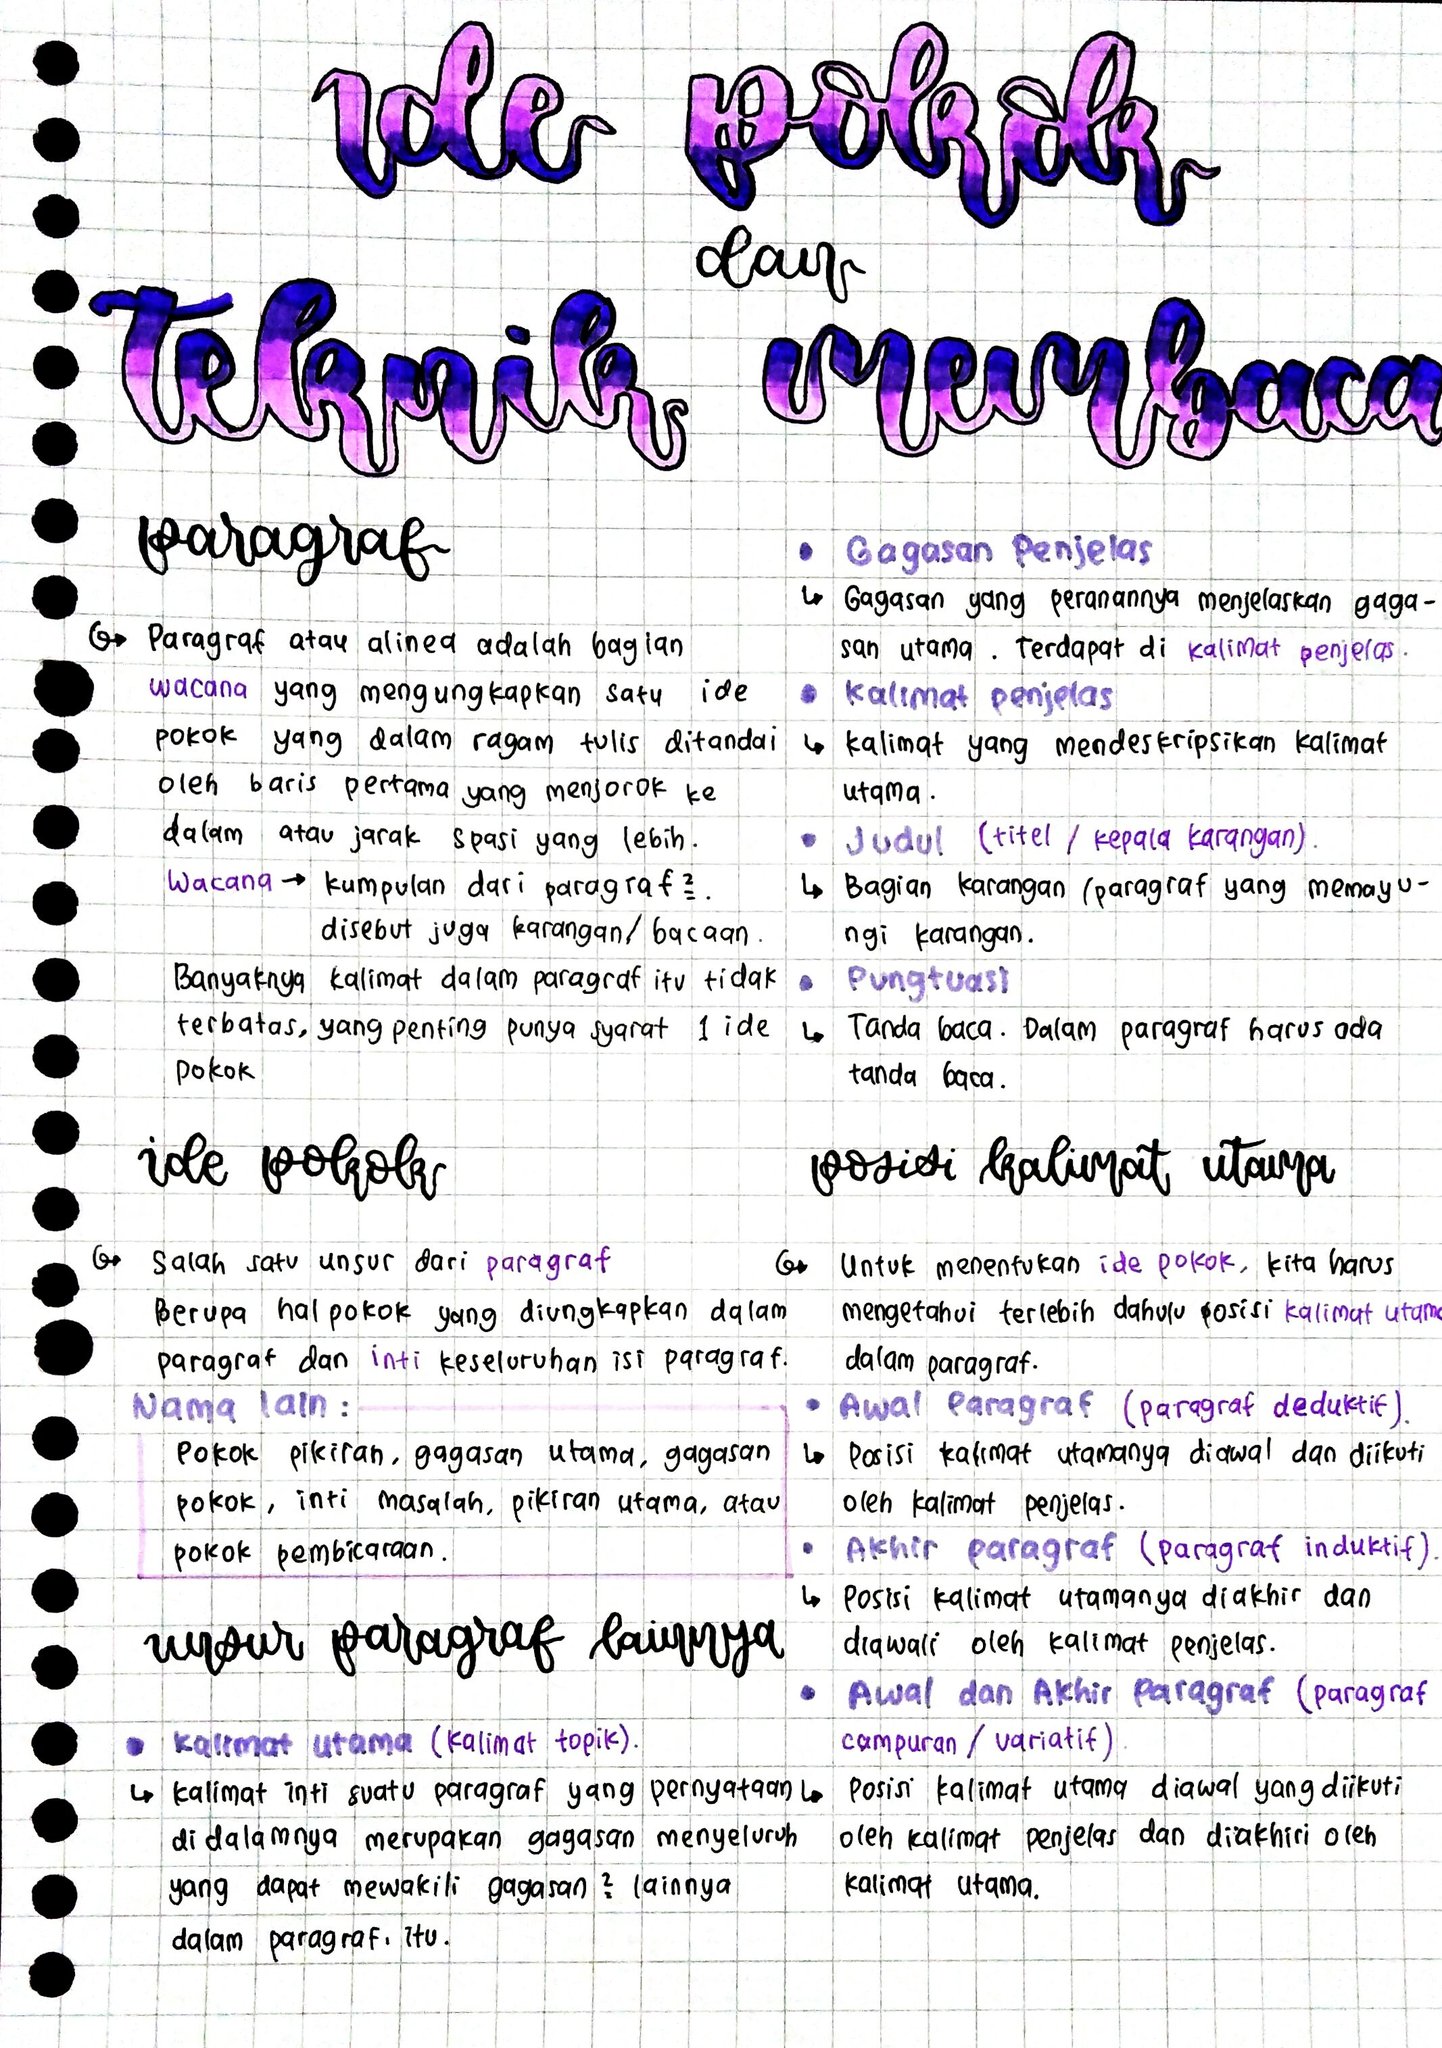 ide pokok
dan
Teknik membaca
paragraf
Paragraf atau alinea adalah bagian
wacana yang mengungkapkan satu ide
pokok yang dalam ragam tulis ditandai
oleh baris pertama yang menjorok ke
dalam atau jarak spasi yang lebih.
Wacana → kumpulan dari paragraf2.
disebut juga karangan/bacaan.
Banyaknya kalimat dalam paragraf itu tidak
terbatas, yang penting punya syarat 1 ide
pokok
ide pokok
Salah satu unsur dari paragraf
Berupa hal pokok yang diungkapkan dalam
paragraf dan inti keseluruhan isi paragraf.
Nama lain :
Pokok pikiran, gagasan utama, gagasan
pokok, inti masalah, pikiran utama, atau
pokok pembicaraan.
unsur paragraf lainnya
• Kalimat utama (kalimat topik).
↳ kalimat inti suatu paragraf yang pernyataan
didalamnya merupakan gagasan menyeluruh
yang dapat mewakili gagasan2 lainnya
dalam paragraf. itu.
• Gagasan Penjelas
↳ Gagasan yang peranannya menjelaskan gaga-
san utama. Terdapat di kalimat penjelas.
• Kalimat penjelas
↳ kalimat yang mendeskripsikan kalimat
utama.
• Judul (titel / kepala karangan).
↳ Bagian karangan /paragraf yang memayu-
ngi karangan.
• Pungtuasi
↳ Tanda baca. Dalam paragraf harus ada
tanda baca.
posisi kalimat utama
Untuk menentukan ide pokok, kita harus
mengetahui terlebih dahulu posisi kalimat utama
dalam paragraf.
• Awal Paragraf (paragraf deduktif).
↳ Posisi kalimat utamanya diawal dan diikuti
oleh kalimat penjelas.
• Akhir paragraf (paragraf induktif).
↳ Posisi kalimat utamanya diakhir dan
diawali oleh kalimat penjelas.
• Awal dan Akhir Paragraf (paragraf
campuran / variatif)
↳ Posisi kalimat utama diawal yang diikuti
oleh kalimat penjelas dan diakhiri oleh
kalimat utama.